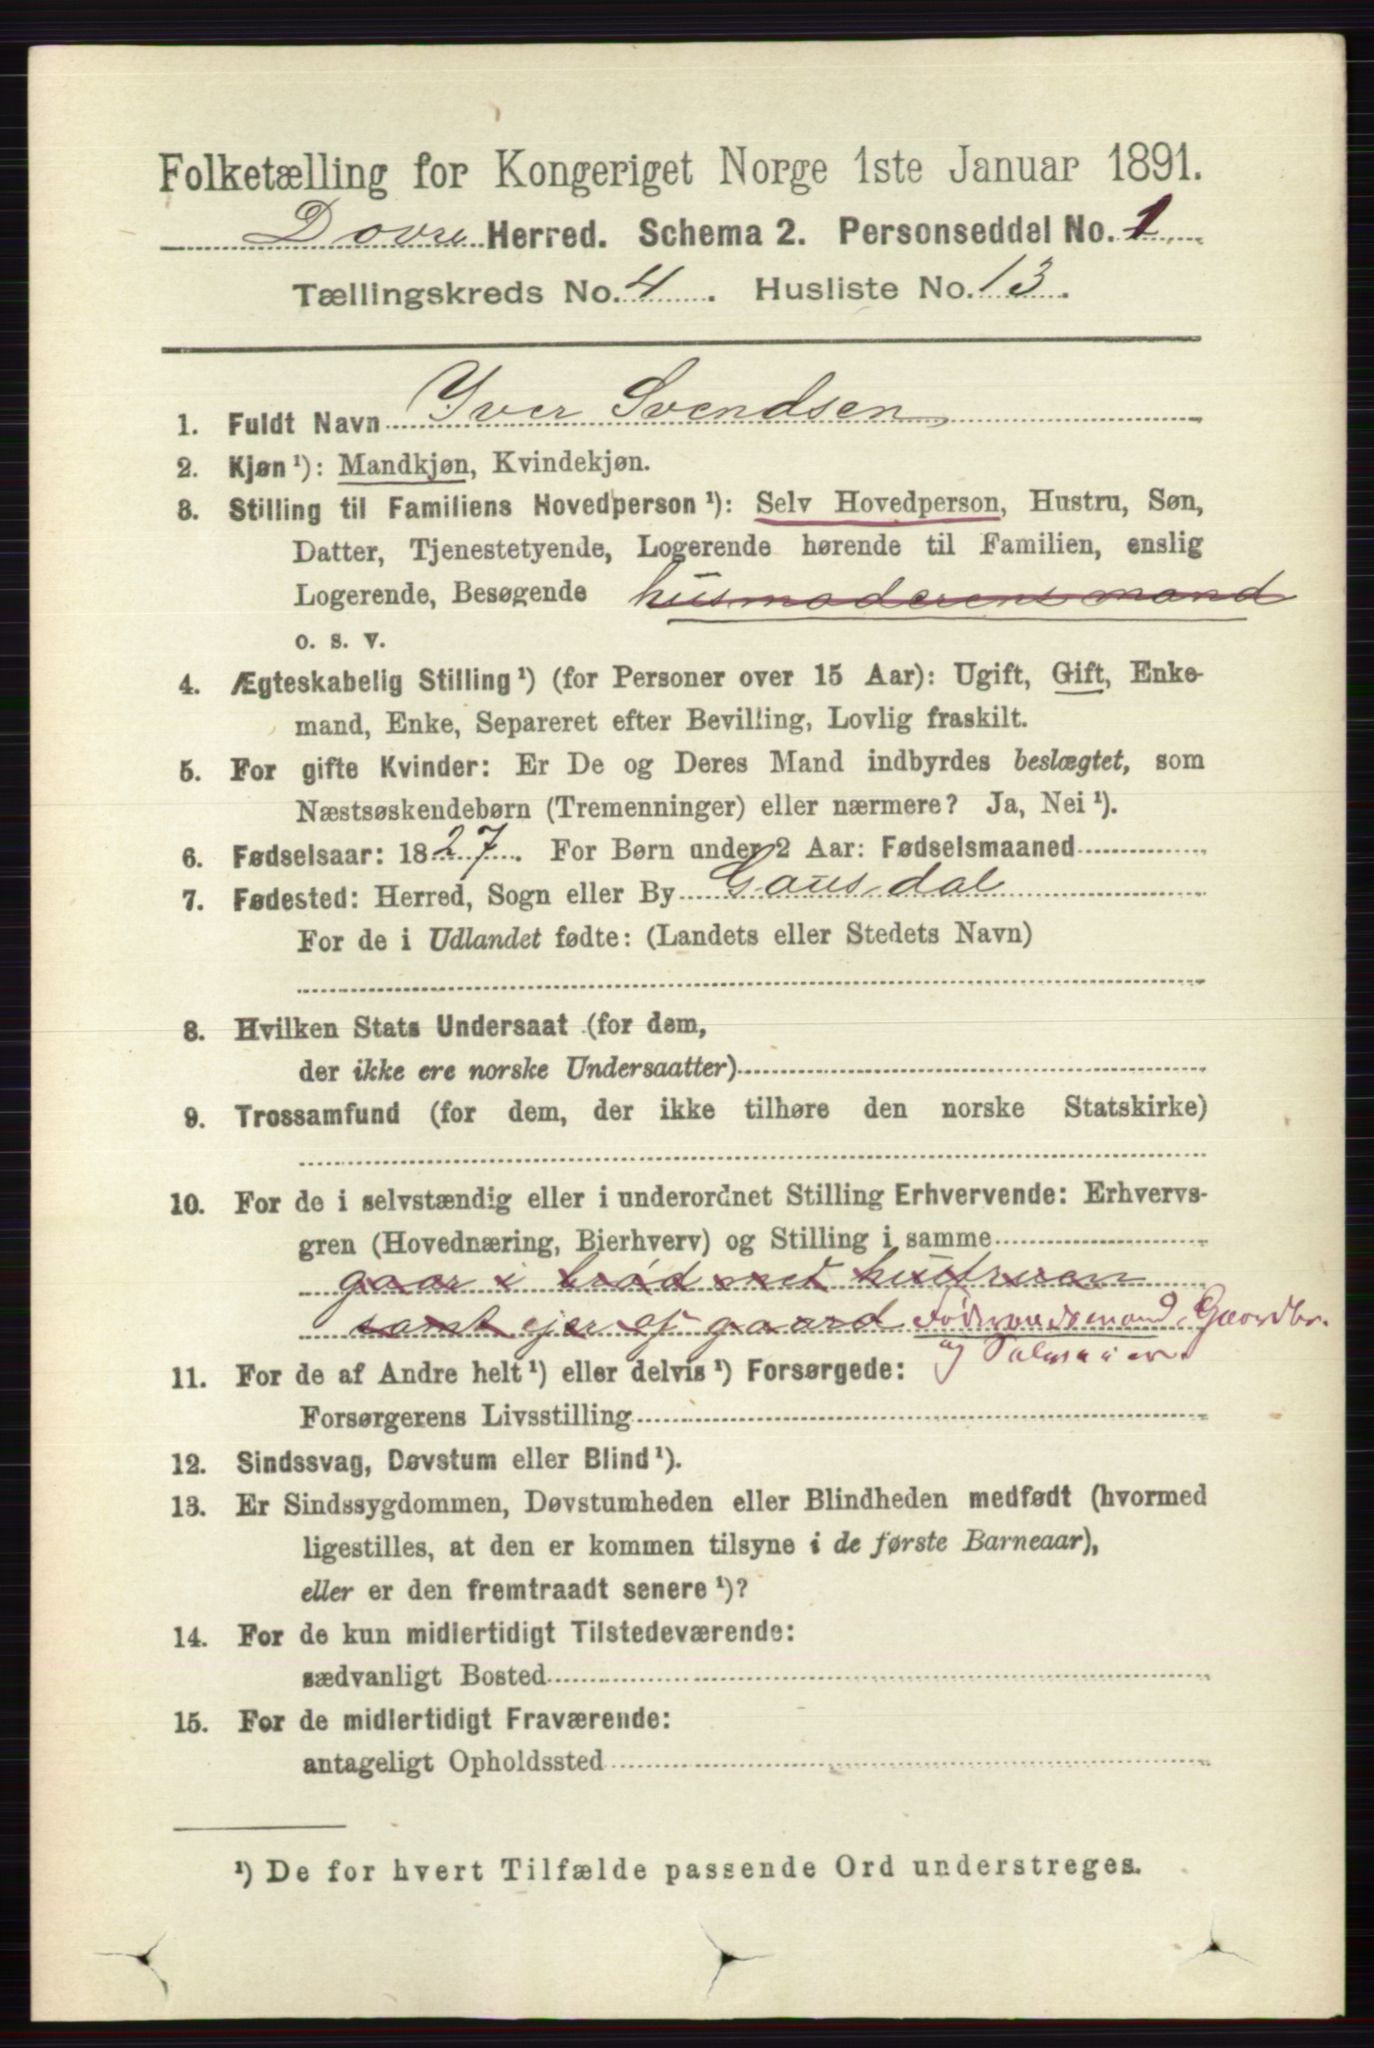 Folketælling for Kongeriget Norge 1ste Januar 1891.
Dovre Herred. Schema 2. Personseddel No. 1
Tællingskreds No. 4. Husliste No. 13.
1. Fuldt Navn Iver Svendsen
2. Kjøn ¹): Mandkjøn, Kvindekjøn.
3. Stilling til Familiens Hovedperson ¹): Selv Hovedperson, Hustru, Søn,
Datter, Tjenestetyende, Logerende hørende til Familien, enslig
Logerende, Besøgende husmoderens mand
o. s. v.
4. Ægteskabelig Stilling ¹) (for Personer over 15 Aar): Ugift, Gift, Enke-
mand, Enke, Separeret efter Bevilling, Lovlig fraskilt.
5. For gifte Kvinder: Er De og Deres Mand indbyrdes beslægtet, som
Næstsøskendebørn (Tremenninger) eller nærmere? Ja, Nei ¹).
6. Fødselsaar: 1827. For Børn under 2 Aar: Fødselsmaaned
7. Fødested: Herred, Sogn eller By Gausdal
For de i Udlandet fødte: (Landets eller Stedets Navn)
8. Hvilken Stats Undersaat (for dem,
der ikke ere norske Undersaatter)
9. Trossamfund (for dem, der ikke tilhøre den norske Statskirke)
10. For de i selvstændig eller i underordnet Stilling Erhvervende: Erhvervs-
gren (Hovednæring, Bierhverv) og Stilling i samme
gaar i brød met hustruen
samt ejer af gaard Føderaadsmand, Gaardbr.
og
11. For de af Andre helt ¹) eller delvis ¹) Forsørgede:
Forsørgerens Livsstilling
12. Sindssvag, Døvstum eller Blind ¹).
13. Er Sindssygdommen, Døvstumheden eller Blindheden medfødt (hvormed
ligestilles, at den er kommen tilsyne i de første Barneaar),
eller er den fremtraadt senere ¹)?
14. For de kun midlertidigt Tilstedeværende:
sædvanligt Bosted
15. For de midlertidigt Fraværende:
antageligt Opholdssted
¹) De for hvert Tilfælde passende Ord understreges.